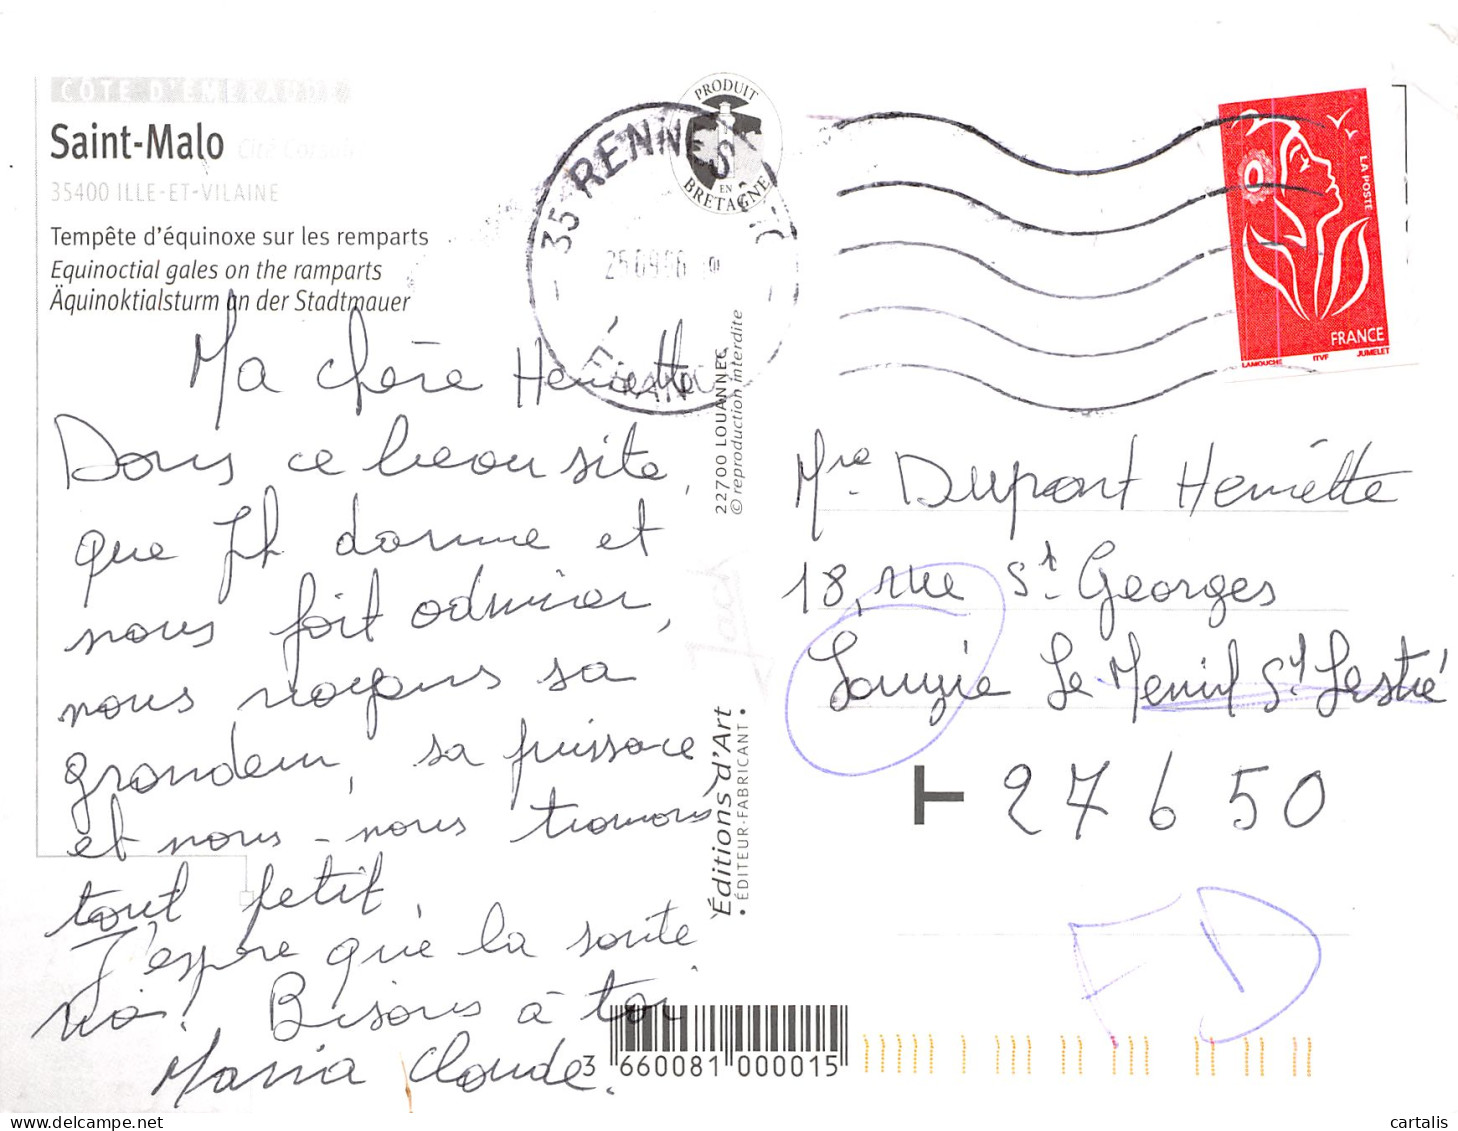 CÔTE D'ÉMERAUDE
Saint-Malo Cité Corsaire
35400 ILLE-ET-VILAINE
Tempête d'équinoxe sur les remparts
Equinoctial gales on the ramparts
Äquinoktialsturm an der Stadtmauer
PRODUIT
EN
BRETAGNE
35 RENNES
25 09 06
LA POSTE
FRANCE
LAMOUCHE ITVF JUMELET
Ma chère Henriette
Dans ce beau site,
que Jh donne et
nous fait admirer,
nous voyons sa
grandeur, sa puissance
et nous-nous trouvons
tout petit
J'espère que la santé
va! Bisous à toi
Maria Claude.
22700 LOUANNEC
© reproduction interdite
Éditions d'Art
• ÉDITEUR-FABRICANT •
Dupont Henriette
18, rue St Georges
Le Mesnil St
T 27650
3 660081 000015
cartalis